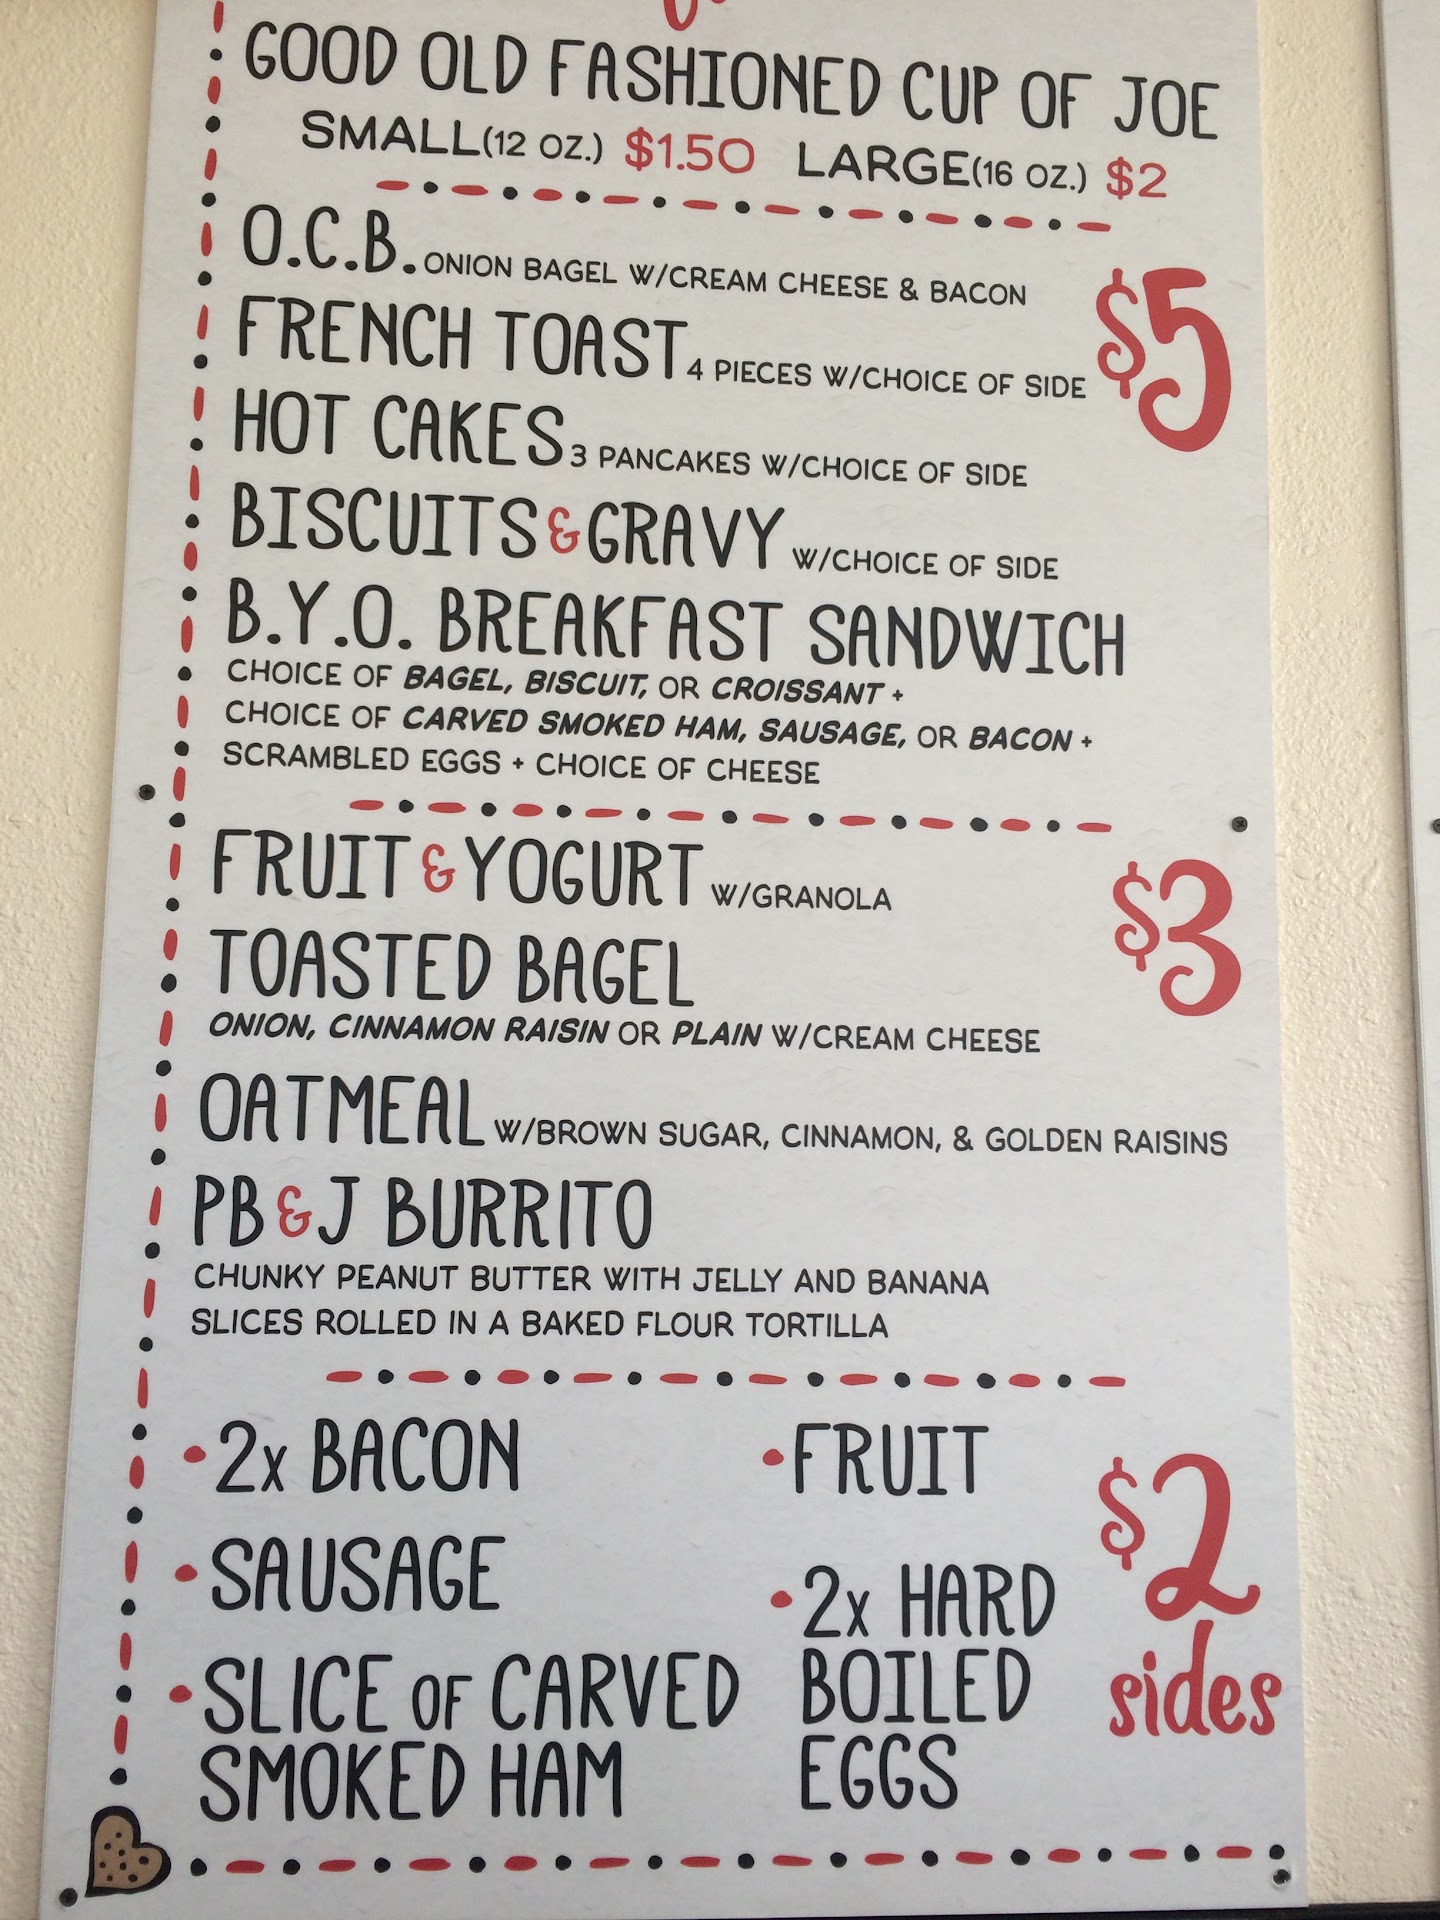 GOOD OLD FASHIONED CUP OF JOE
SMALL(12 OZ.) $1.50 LARGE(16 OZ.) $2
O.C.B. ONION BAGEL W/CREAM CHEESE & BACON
$5
FRENCH TOAST 4 PIECES W/CHOICE OF SIDE
HOT CAKES 3 PANCAKES W/CHOICE OF SIDE
BISCUITS & GRAVY W/CHOICE OF SIDE
B.Y.O. BREAKFAST SANDWICH
CHOICE OF BAGEL, BISCUIT, OR CROISSANT +
CHOICE OF CARVED SMOKED HAM, SAUSAGE, OR BACON +
SCRAMBLED EGGS + CHOICE OF CHEESE
FRUIT & YOGURT W/GRANOLA
$3
TOASTED BAGEL
ONION, CINNAMON RAISIN OR PLAIN W/CREAM CHEESE
OATMEAL W/BROWN SUGAR, CINNAMON, & GOLDEN RAISINS
PB & J BURRITO
CHUNKY PEANUT BUTTER WITH JELLY AND BANANA
SLICES ROLLED IN A BAKED FLOUR TORTILLA
•2x BACON
•SAUSAGE
•SLICE OF CARVED
SMOKED HAM
•FRUIT
•2x HARD
BOILED
EGGS
$2
sides